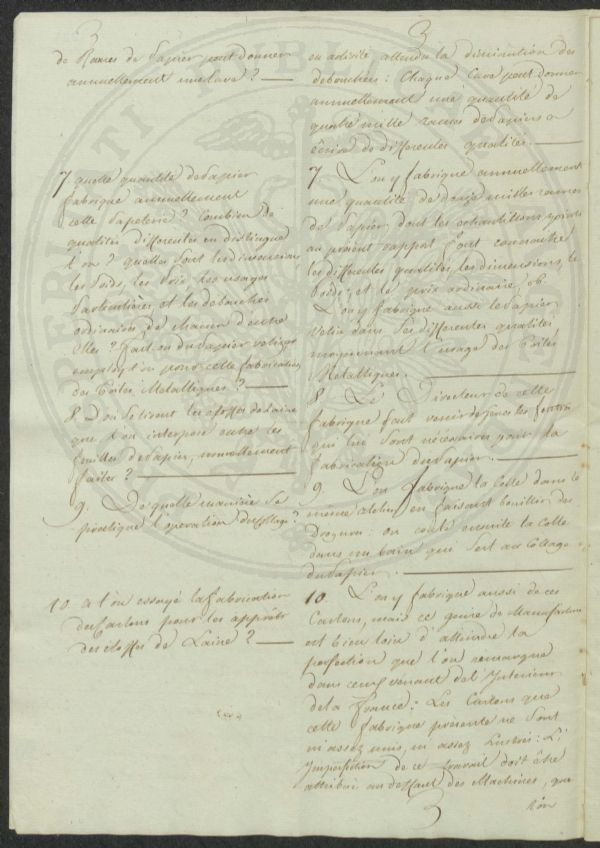 3
de Rames de Papier peut donner
annuellement une Cave ? —
7 quelle quantité de Papier
fabrique annuellement
cette Papeterie ? Combien de
qualités differentes en distingue
t'on ? quelles sont les dimensions
les Poids, les Prix, les usages
Particuliers, et les debouchés
ordinaires de chacun d'entre
Elles ? fait on du Papier velin
employe t'on pour cette fabrication
des toiles Metalliques ? —
8. D'ou se tirent les etoffes de laine
que l'on interpose entre les
feuilles de Papier, nouvellement
faites ? —
9. De quelle maniere se
pratique l'operation du Collage ?
10. a t'on essayé la fabrication
des Cartons pour les apprêts
des étoffes de Laine ? —
3
ou activité attendu la diminution des
debouchés : Chaque Cave peut donner
annuellement une quantité de
quatre mille rames de Papiers a
écrire de differentes qualités. —
7. L'on y fabrique annuellement
une quantité de douze milles rames
de Papier, dont les echantillons joints
au présent rapport font connaitre
les differentes qualités, les dimensions, le
Poids, et le prix ordinaire,
L'on y fabrique aussi le Papier
velin dans ses differentes qualités
moyennant l'usage des toiles
Metalliques. —
8. Le Directeur de cette
fabrique fait venir de les feutres
qui lui sont nécessaires pour la
fabrication du Papier. —
9. L'on fabrique la Colle dans le
même atelier en faisant bouillir des
Rognures : on coule ensuite la colle
dans un bain qui sert au Collage
du Papier. —
10. L'on y fabrique aussi de ces
Cartons, mais ce genre de Manufacture
est bien loin d'atteindre la
perfection que l'on remarque
dans ceux venant de l'Interieur
de la France : Les Cartons que
cette fabrique présente ne sont
ni assez unis, ni assez Lustrés : L'
Imperfection de ce travail doit être
attribué au deffaut des Machines, que
l'on